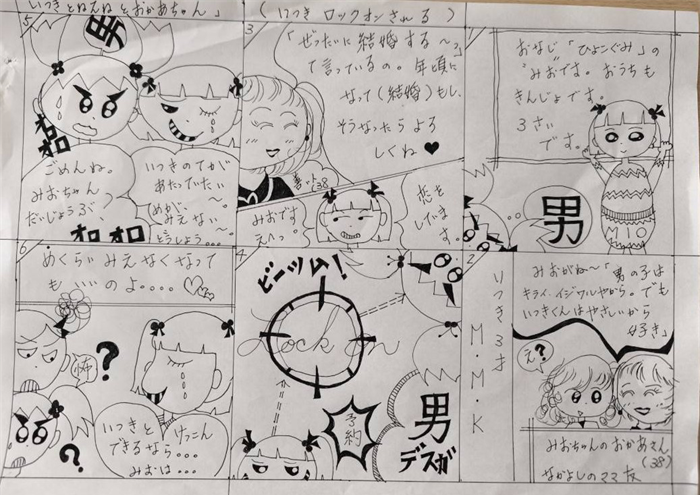 いつきとねえねとおかあちゃん」
(いつき ロックオンされる)
1
おなじ「ひよこぐみ」の
みおです。おうちも
きんじょです。
3さい
です。
男
MIO
2
いつき3才
M・M・K
みおがね〜「男の子は
キライ、イジワルやから。でも
いつきくんはやさしいから
好き」
え?
みおちゃんのおかあさん
(38)
なかよしのママ友
3
「ぜったいに結婚する〜」
て言っているの。年頃に
なって(結婚)もし、
そうなったらよろ
しくね♥
38
みおです
えへっ。
恋を
しています。
4
ビーッム!
Lock on
予約
男
デスガ
5
男
オロ
オロ
ごめんね。
みおちゃん
だいじょうぶ、
オロ オロ
いつきのてが
あたっていたい
〜
めが、
みえない〜
どうしよう...
6
めくらい みえなくなって
も いいのよ....
怖
?
?
いつきと
できるなら...
けっこん
みおは...